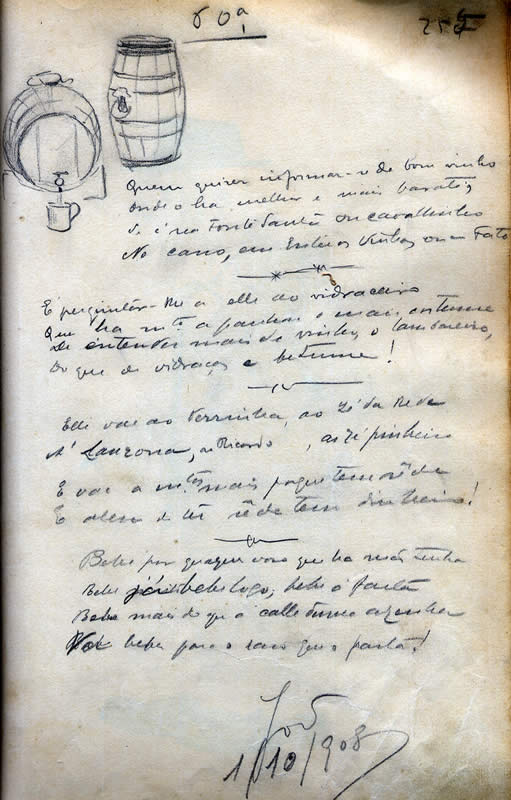 60ª
258
Quem quizer informar-se de bom vinho
onde o ha melhor e mais barato,
Se é na Fonte Santa ou cavallinho
No cano, em Entre os Vinhos ou na Fato
E perguntar-lhe a elle ao vidraceiro
Que ha mto apanhou o mau costume
De entender mais de vinho, o lambareiro,
Do que de vidraças e betume!
Elle vae ao Terrinha, ao Zé da Rede
A' Lanzona, ao Ricardo, ao Zé pinheiro
E vae a mtos mais porque tem sêde
E alem de ter sêde tem dinheiro!
Bebe por qualquer vaso que ha mão tenha
Bebe já bebe logo, bebe á farta
Bebe mais do que a calle d'uma azenha
bebe para o que o parta!
1/10/908